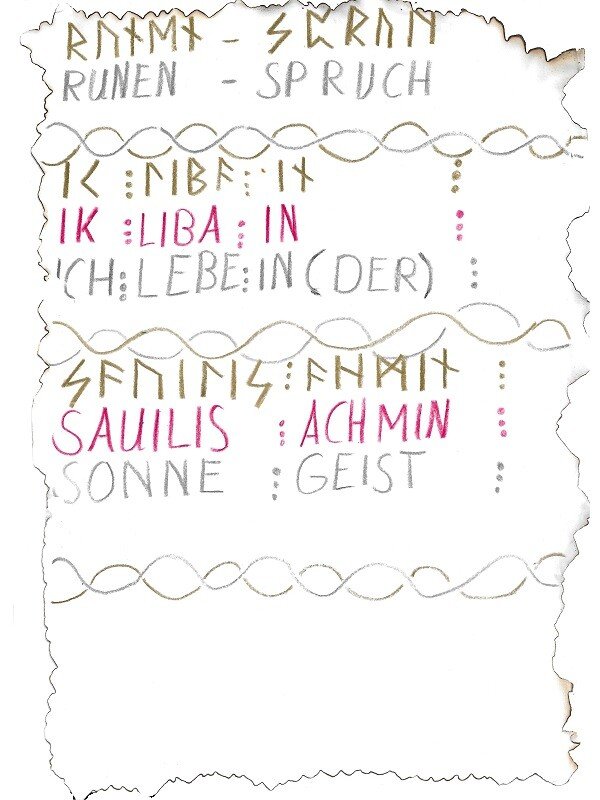 ᚱᚢᚾᛖᚾ - ᛊᛈᚱᚢᚺ
RUNEN - SPRUCH
ᛁᚲ ⁝ ᛚᛁᛒᚨ ⁝ ᛁᚾ ⁝
IK ⁝ LIBA ⁝ IN ⁝
ICH ⁝ LEBE ⁝ IN (DER) ⁝
ᛊᚨᚢᛁᛚᛁᛊ ⁝ ᚨᚺᛗᛁᚾ ⁝
SAUILIS ⁝ ACHMIN ⁝
SONNE ⁝ GEIST ⁝